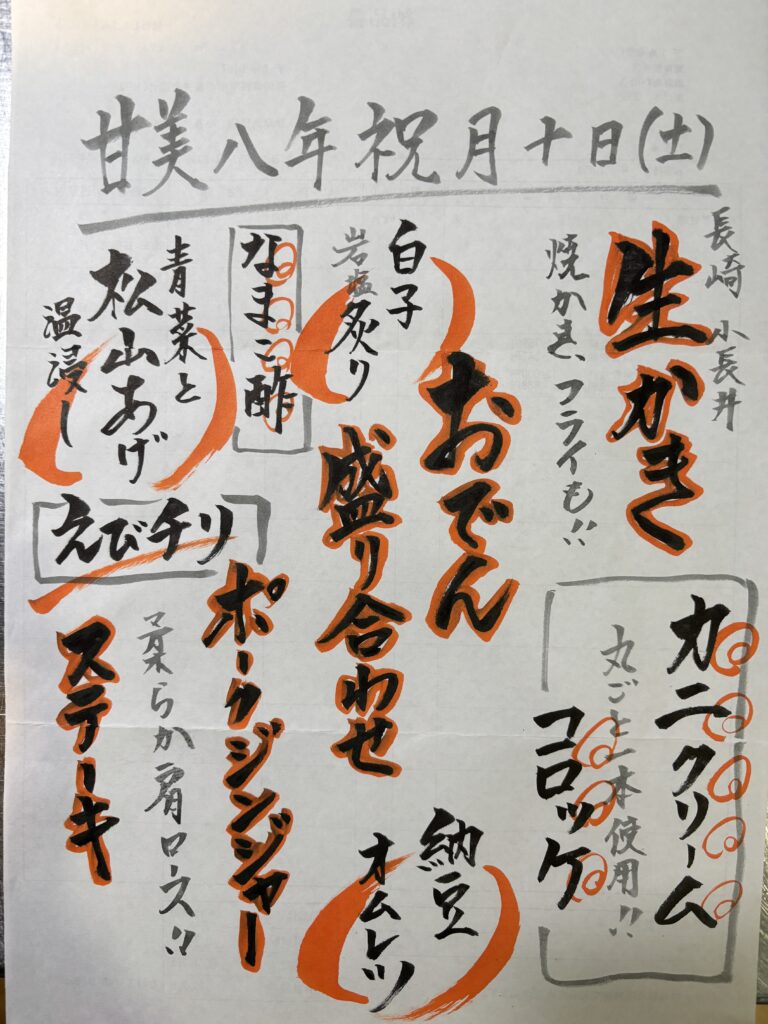 甘美八年祝月十日(土)
長崎 小長井
生かき
焼かき、フライも!!
カニクリーム
丸ごと一本使用!!
コロッケ
おでん
盛り合わせ
白子
岩塩炙り
なまこ酢
青菜と
松山あげ
温浸し
えびチリ
ポークジンジャー
柔らか肩ロース!!
ステーキ
納豆
オムレツ